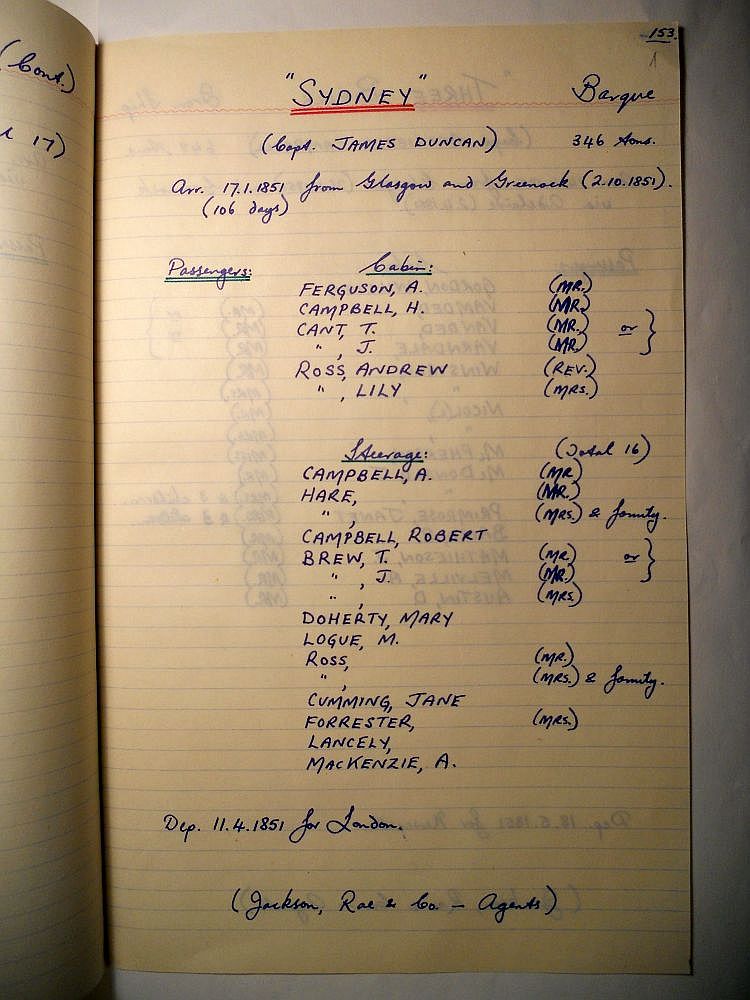 (Cont.)
17)
153.
1
"SYDNEY" Barque
(Capt. JAMES DUNCAN) 346 tons.
Arr. 17.1.1851 from Glasgow and Greenock (2.10.1851).
(106 days)
Passengers: Cabin:
FERGUSON, A. (MR.)
CAMPBELL, H. (MR.)
CANT, T. (MR.) or }
" , J. (MR.)
ROSS, ANDREW (REV.)
" , LILY (MRS.)
Steerage: (Total 16)
CAMPBELL, A. (MR.)
HARE, (MR.)
" , (MRS.) & family.
CAMPBELL, ROBERT
BREW, T. (MR.) or }
" , J. (MR.)
" , (MRS.)
DOHERTY, MARY
LOGUE, M.
ROSS, (MR.)
" , (MRS.) & family.
CUMMING, JANE
FORRESTER, (MRS.)
LANCELY,
MACKENZIE, A.
Dep. 11.4.1851 for London.
(Jackson, Rae & Co. - Agents)